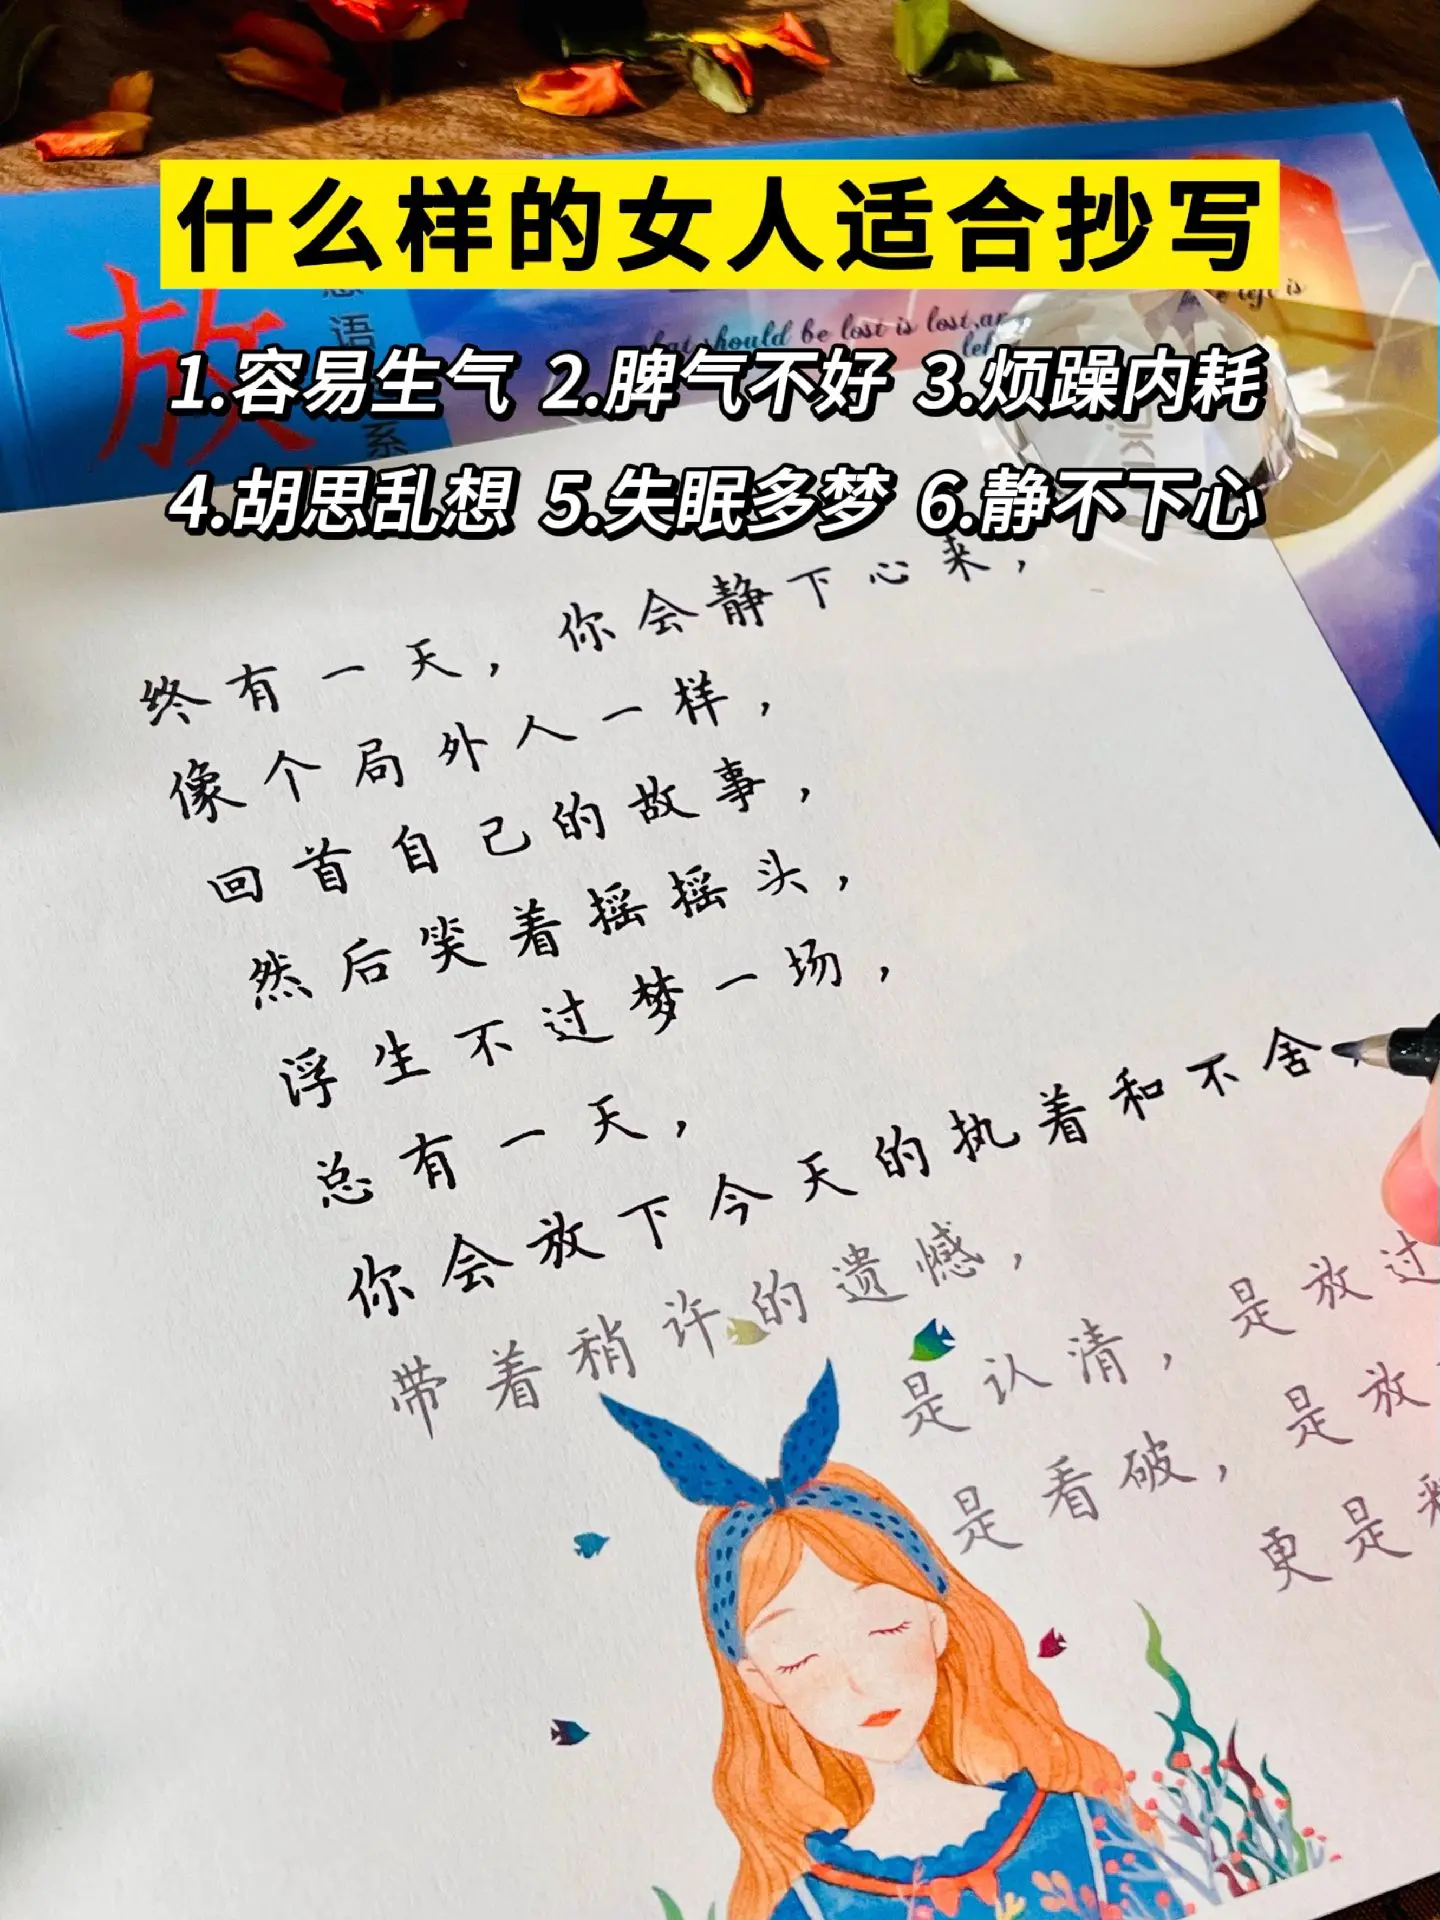 什么样的女人适合抄写
放
语
系
should be lost is lost,
1.容易生气 2.脾气不好 3.烦躁内耗
4.胡思乱想 5.失眠多梦 6.静不下心
终有一天，你会静下心来，
像个局外人一样，
回首自己的故事，
然后笑着摇摇头，
浮生不过梦一场，
总有一天，
你会放下今天的执着和不舍，
带着稍许的遗憾，
是认清，是放过
是看破，是放
更是